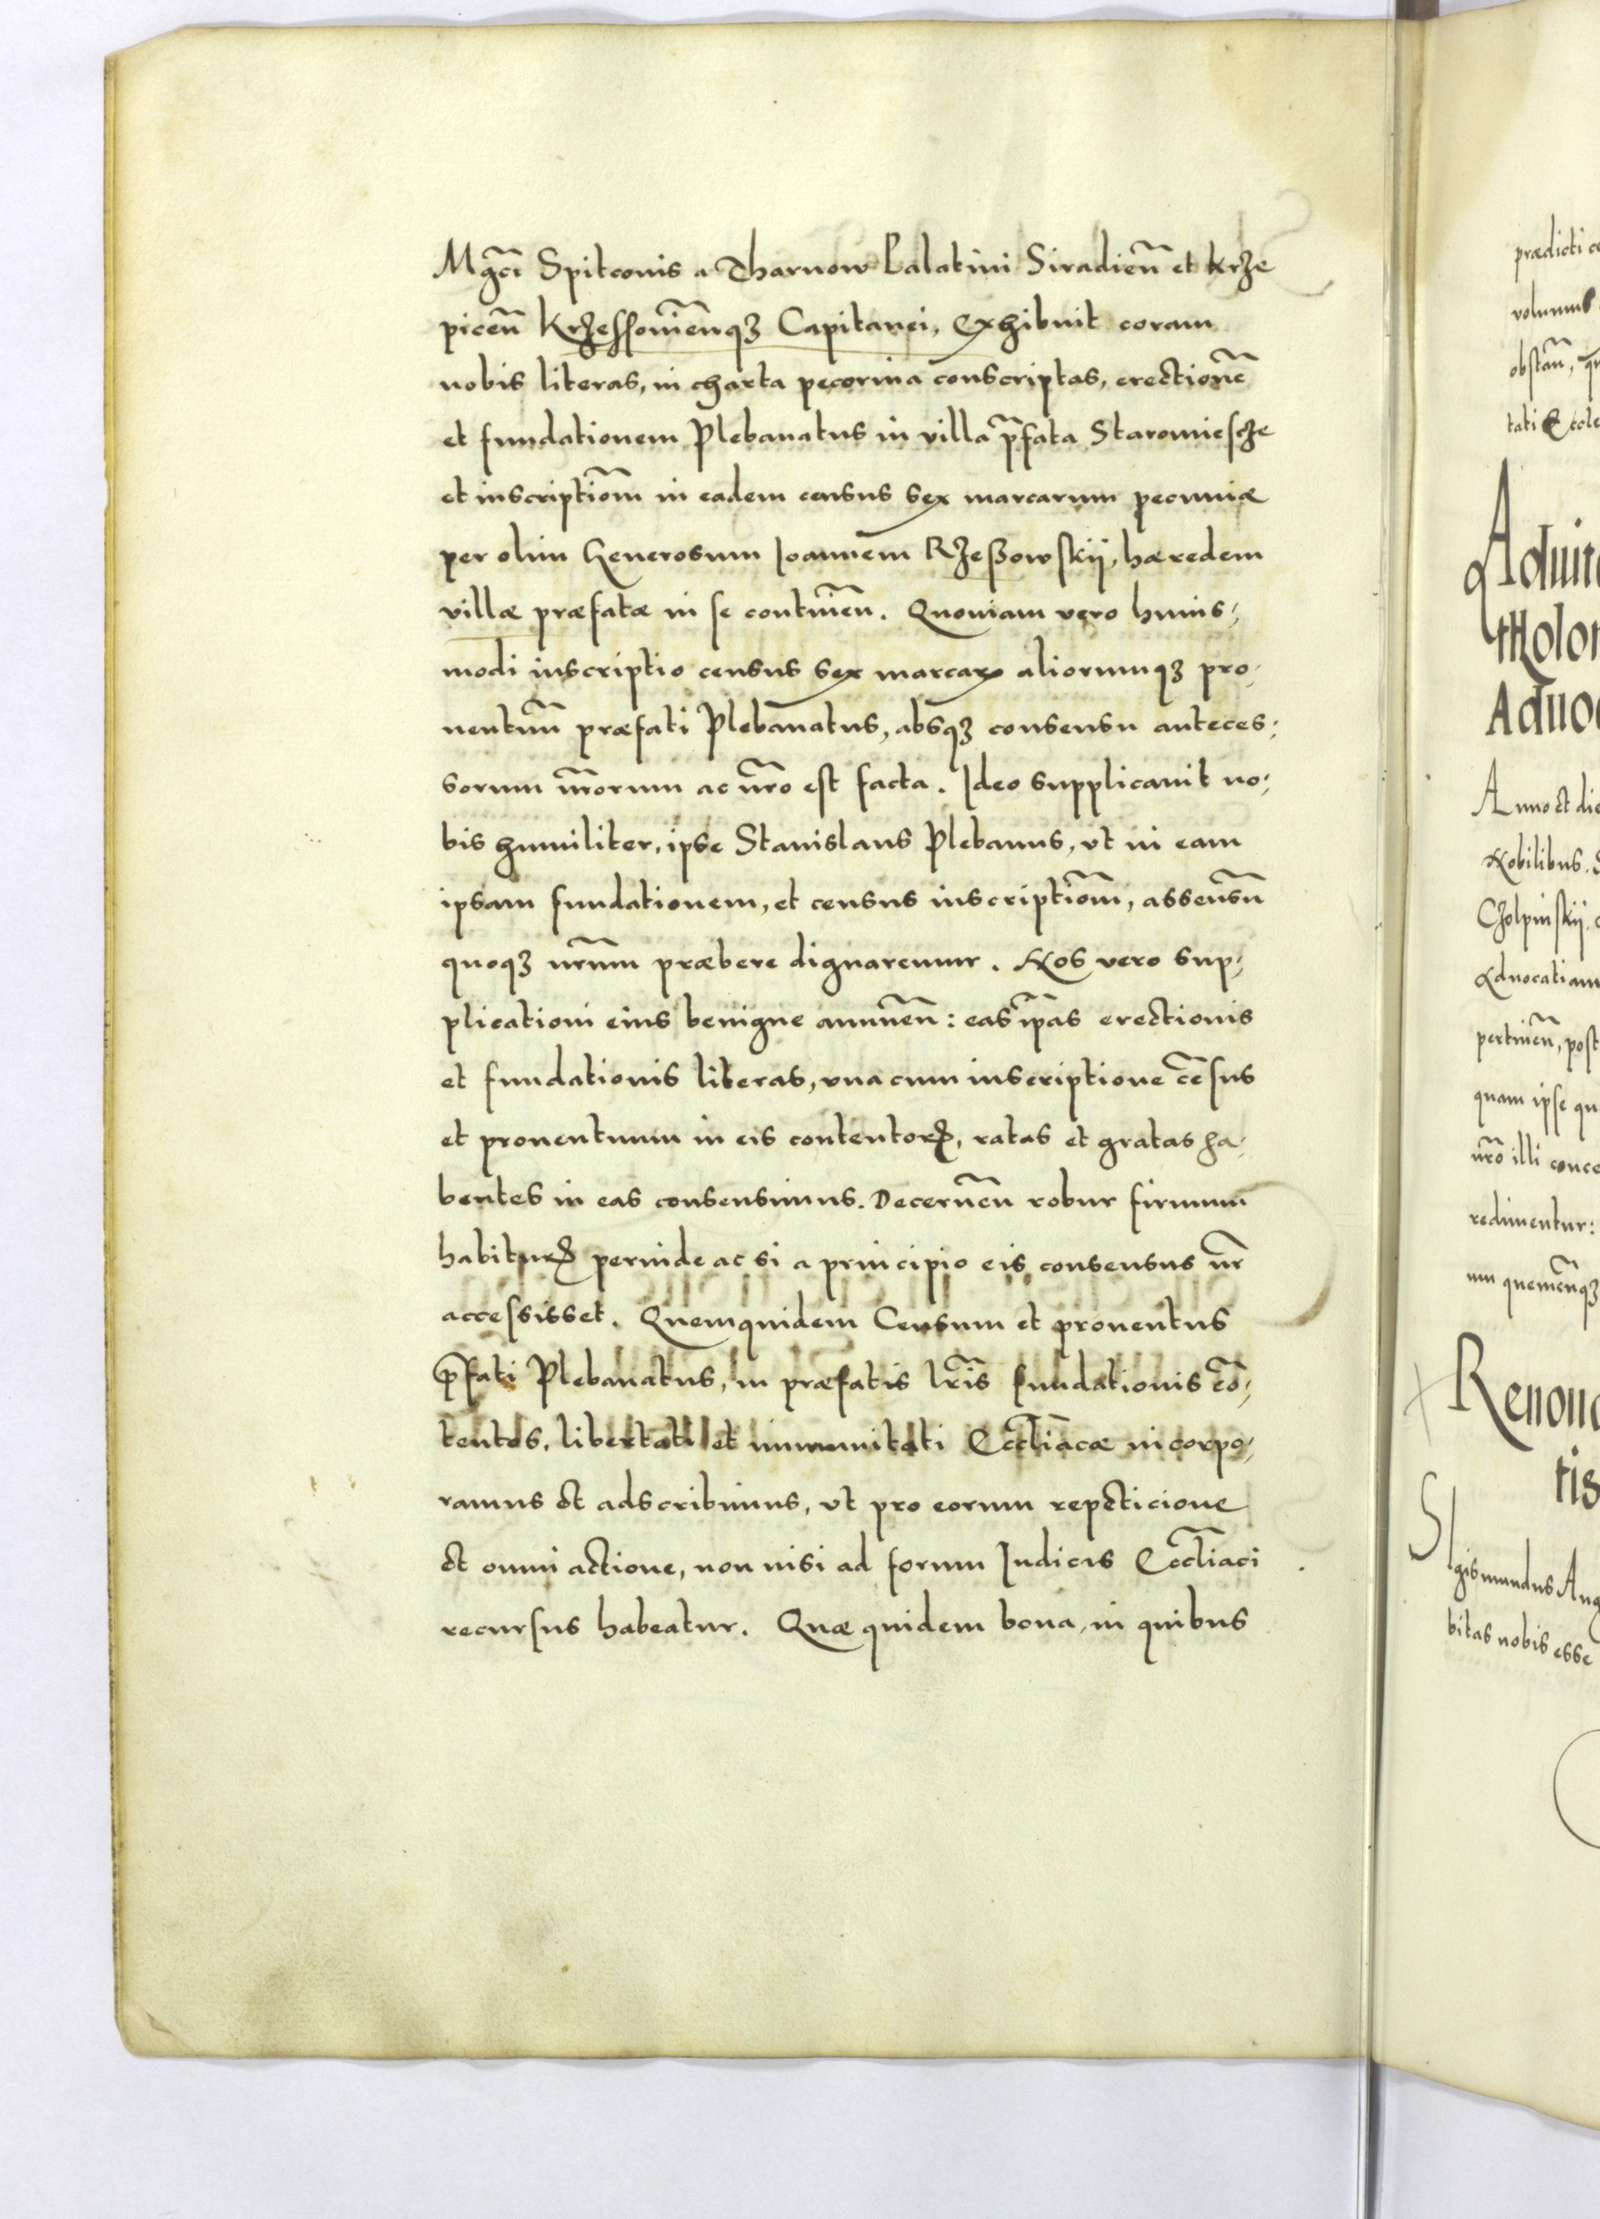 Mgc̃i Spitconis a Tharnow Palatini Siradieñ et Krze
piceñ Krzessovieñqꝫ Capitanei, Exhibuit coram
nobis literas, in charta pecorina conscriptas, erectionẽ
et fundationem Plebanatus in villa p̃fata Staromiescze
et inscriptiõm in eadem census sex marcarum pecuniæ
per olim Generosum Ioannem Rzeßowskij, hæredem
villæ præfatæ in se contineñ. Quoniam vero huius-
modi inscriptio census sex marcarꝝ aliorumqꝫ pro-
uentuũ præfati Plebanatus, absqꝫ consensu anteces-
sorum nr̃orum ac nr̃o est facta. Ideo supplicauit no-
bis humiliter, ipse Stanislaus Plebanus, vt in eam
ipsam fundationem, et census inscriptiõm, assensũ
quoqꝫ nr̃um præbere dignaremur. Nos vero sup-
plicationi eius benigne annueñ: eas ip̃as erectionis
et fundationis literas, vna cum inscriptione cẽsus
et prouentuum in eis contentorꝝ, ratas et gratas ha-
bentes in eas consensimus. Decerneñ robur firmum
habiturꝝ perinde ac si a principio eis consensus nr̃
accessisset. Quemquidem Censum et prouentus
p̃fati Plebanatus, in præfatis lr̃is fundationis cõ-
tentos, libertati et immunitati Eccl̃iacæ incorpo-
ramus et adscribimus, vt pro eorum repeticione
et omni actione, non nisi ad forum Iudicis Eccl̃iaci
recursus habeatur. Quæ quidem bona, in quibus
prædicti
volumus
obstañ,
tati Eccle
Aduit
Molon
Aduoc
Anno et die
Nobilibus.
Czolpinskij.
Aduocatiam
pertineñ, post
quam ipse qu
nr̃o illi conce
redimentur:
um quemcũqꝫ
Renou
tis
Sigismundus Aug
bitas nobis esse